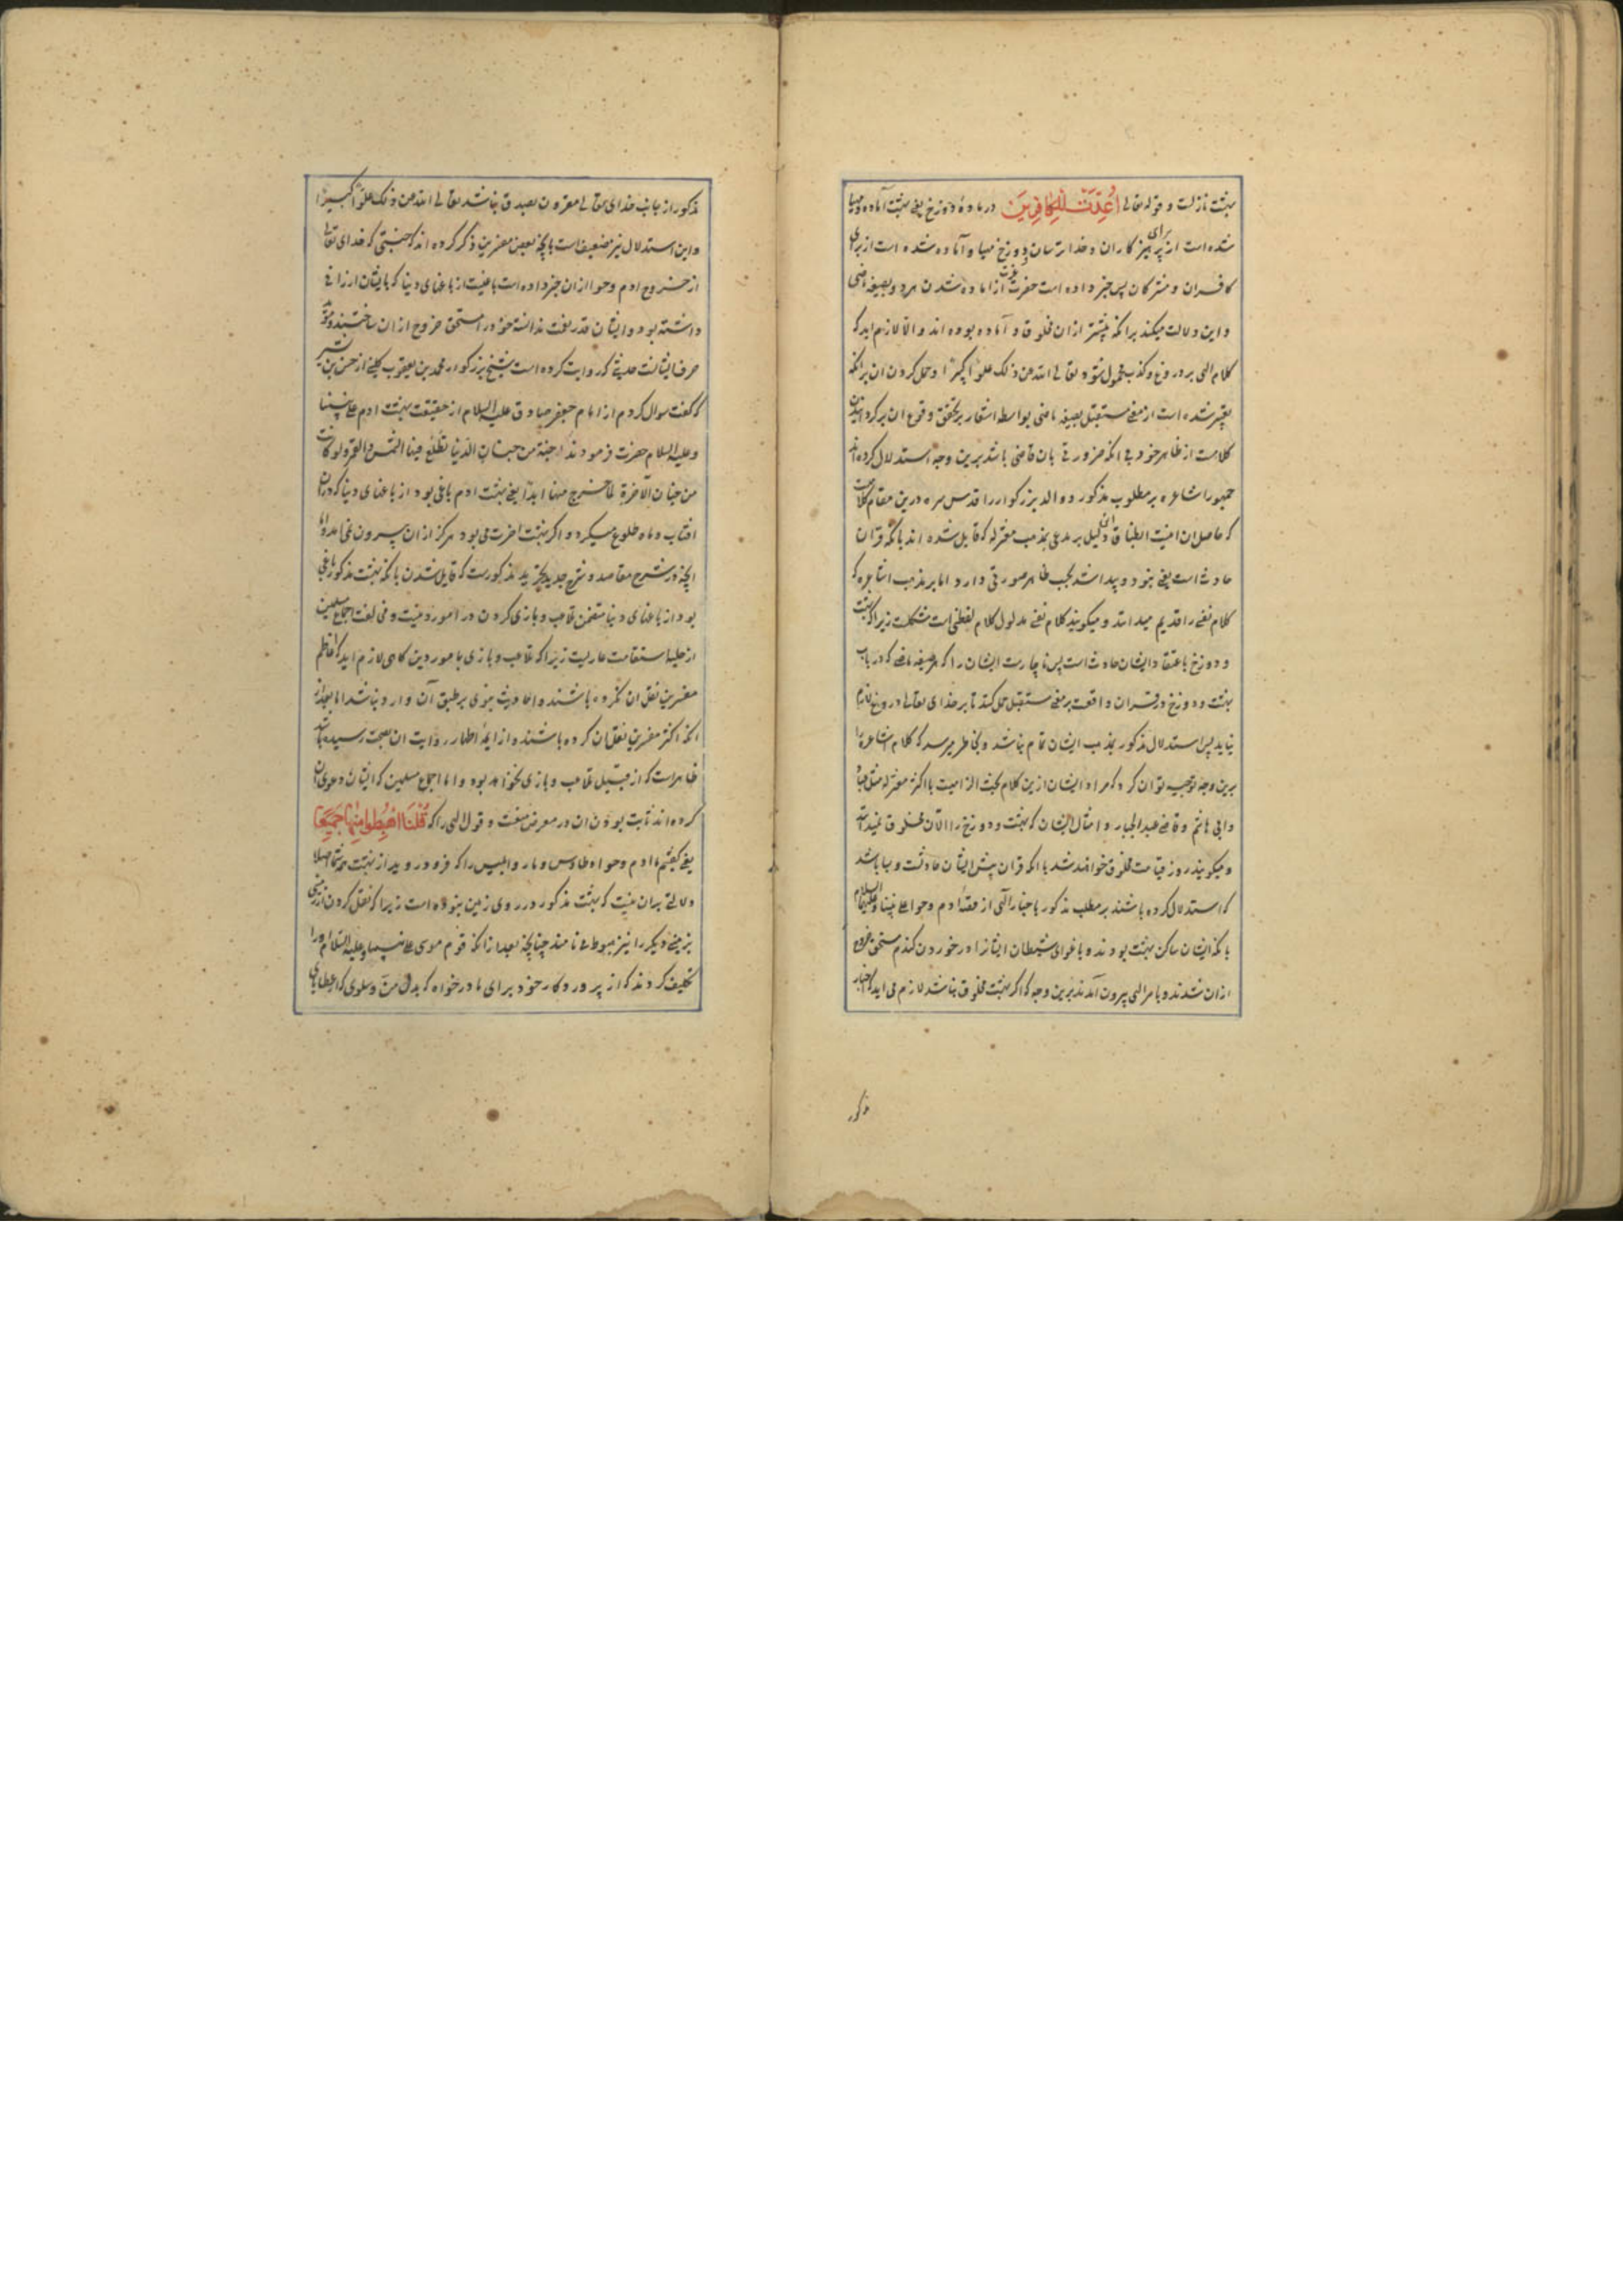 بهشت نازلست و قوله تعالی اُعِدَّتْ لِلْکافِرینَ در ماده دوزخ یعنی بهشت آماده و مهیا
شده است از برای پرهیز کاران و خدا ترسان و دوزخ مهیا و آماده شده است از برای
کافران و مشرکان پس خبر داده است حضرت عزت از اماده شدن هر دو بصیغه ماضی
و این دلالت میکند برانکه پیشتر ازان مخلوق و آماده بوده اند و الا لازم اید که
کلام الهی بر دروغ و کذب محمول شود تعالی الله عن ذلک علوا کبیرا و حمل کردن ان برانکه
تعبیر شده است از معنی مستقبل بصیغه ماضی بواسطه اشعار بر تحقق وقوع ان بر گردانیدن
کلامست از ظاهر خود بی انکه ضرورتی بان قاضی باشد برین وجه استدلال کرده اند
جمهور اشاعره بر مطلوب مذکور و والد بزرگوار را قدس سره درین مقام کلامیست
که حاصل ان اینست انطباق این دلیل بر مدعی بمذهب معتزله که قایل شده اند بانکه قران
حادث است یعنی نبود و پیدا شد بحسب ظاهر صورتی دارد اما بر مذهب اشاعره که
کلام نفسی را قدیم میدانند و میکویند کلام نفسی مدلول کلام لفظی است مشکلست زیرا که بهشت
و دوزخ باعتقاد ایشان حادث است پس ناچارست ایشان را که هر صیغه ماضی که در باب
بهشت و دوزخ در قران واقعست بر معنی مستقبل حمل کنند تا بر خدای تعالی دروغ لازم
نیاید پس استدلال مذکور بمذهب ایشان تمام نباشد و بخاطر میرسد که کلام اشاعره را
برین وجه توجیه توان کرد که مراد ایشان ازین کلام بحث الزامیست با اکثر معتزله مثل جبائی
و ابی هاشم و قاضی عبد الجبار و امثال ایشان که بهشت و دوزخ را الآن مخلوق نمیدانند
و میکویند روز قیامت مخلوق خواهند شد با انکه قران پیش ایشان حادثست و بسا باشد
که استدلال کرده باشند بر مطلب مذکور باخبار الهی از قصه ادم و حوا علی نبینا و علیهما السلام
بانکه ایشان ساکن بهشت بودند و باغوای شیطان ایشانرا در خوردن کندم مستحق خروج
ازان شدند و بامر الهی بیرون آمدند برین وجه که اگر بهشت مخلوق نباشد لازم می اید که اخبار
مذکور
مذکور از جانب خدای تعالی مقرون بصدق نباشد تعالی الله عن ذلک علوا کبیرا
و این استدلال نیز ضعیف است بانچه بعض مفسرین ذکر کرده اند که جنتی که خدای تعالی
از خروج ادم و حوا ازان خبر داده است باغیست از باغهای دنیا که بایشان ارزانی
داشته بود و ایشان قدر نعمت ندانسته خود را مستحق خروج ازان ساختند و مؤید
حرف ایشانست حدیثی که روایت کرده است شیخ بزرکوار محمد بن یعقوب کلینی از حسن بن بشیر
که کفت سوال کردم از امام جعفر صادق علیه السلام از حقیقت بهشت ادم علی نبینا
و علیه السلام حضرت فرمودند جنة من جنان الدنیا تطلع فیها الشمس و القمر و لو کانت
من جنان الآخرة لما خرج منها ابدا یعنی بهشت ادم باغی بود از باغهای دنیا که دران
افتاب و ماه طلوع میکرد و اگر بهشت اخرت می بود هرکز ازان بیرون نمی امد و اما
انچه در شرح مقاصد و شرح جدید تجرید مذکورست که قایل شدن بانکه بهشت مذکور باغی
بود از باغهای دنیا متضمن تلاعب و بازی کردن در امور دینیست و مخالفت اجماع مسلمین
از حلیه استقامت عاریست زیرا که تلاعب و بازی بامور دین کاهی لازم اید که اعاظم
مفسرین نقل ان نکرده باشند و احادیث نبوی بر طبق آن وارد نباشد اما بعد از
انکه اکثر مفسرین نقل ان کرده باشند و از ایمه اطهار روایت ان بصحت رسیده باشد
ظاهر است که از قبیل تلاعب و بازی نخواهد بود و اما اجماع مسلمین که ایشان دعوی ان
کرده اند ثابت بودن ان در معرض منعست و قول الهی را که قُلْنَا اهْبِطُوا مِنْها جَمیعًا
یعنی کفتیم ما ادم و حوا و طاوس و مار و ابلیس را که فرود روید از بهشت همه شما اصلا
دلالتی بران نیست که بهشت مذکور در روی زمین نبوده است زیرا که نقل کردن از زمینی
بزمینی دیکر را نیز هبوط می نامند چنانچه بعد از انکه قوم موسی علی نبینا و علیه السلام او را
تکلیف کردند که از پروردکار خود برای ما درخواه که بدل من و سلوی که اعطا